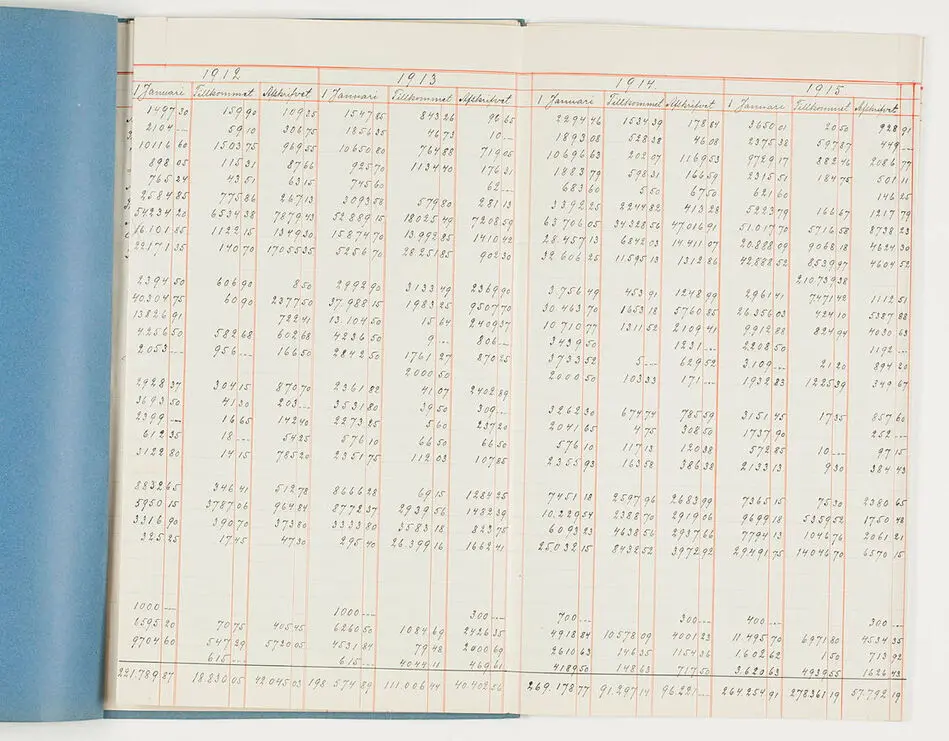 1912 1913 1914 1915
1 Januari Tillkommet Afskrifvet 1 Januari Tillkommet Afskrifvet 1 Januari Tillkommet Afskrifvet 1 Januari Tillkommet Afskrifvet
1497 30 159 90 109 35 1547 85 843 26 96 65 2294 46 1534 39 178 84 3650 01 20 50 928 91
2104 -- 59 10 306 75 1856 35 46 73 10 -- 1893 08 528 38 46 08 2375 38 597 87 449 --
10116 60 1503 75 969 55 10650 80 764 88 719 05 10696 63 202 07 1169 53 9729 17 382 46 2086 77
898 05 115 31 87 66 925 70 1134 40 176 31 1883 79 598 31 166 59 2315 51 184 75 501 11
765 24 43 51 63 15 745 60 62 -- 683 60 5 50 67 50 621 60 146 25
2584 85 775 86 267 13 3093 58 579 80 281 13 3392 25 2244 82 413 28 5223 79 166 67 1217 79
54234 20 6534 38 7879 43 52.889 15 18025 49 7208 59 63.706 05 34328 56 47.016 91 51.017 70 5716 58 8738 23
16.101 85 1122 15 1349 30 15.874 70 13.992 85 1410 42 28.457 13 6842 03 14.411 07 20.888 09 9068 18 4624 30
22171 35 140 70 17055 35 5256 70 28.251 85 902 30 32.606 25 11.595 13 1312 86 42.888 52 8539 97 4604 52
210.739 38
2394 50 606 90 8 50 2992 90 3.133 49 2369 90 3.756 49 453 91 1248 99 2961 41 7471 48 1112 51
40304 75 60 90 2377 50 37.988 15 1983 25 9507 70 30.463 70 1653 18 5760 85 26.356 03 424 10 5387 88
13826 91 722 41 13.104 50 15 64 2409 37 10.710 77 1311 52 2109 41 9912 88 824 94 4030 63
4256 50 582 68 602 68 4236 50 9 -- 806 -- 3439 50 1231 -- 2208 50 1192 --
2053 -- 956 -- 166 50 2842 50 1761 27 870 25 3733 52 5 -- 629 52 3.109 -- 21 20 894 20
2000 50 2000 50 103 33 171 -- 1932 83 1225 39 349 67
2928 37 304 15 870 70 2361 82 41 07 2402 89
3693 50 41 30 203 -- 3531 80 39 50 309 -- 3262 30 674 74 785 59 3151 45 17 35 857 60
2399 -- 16 65 142 40 2273 25 5 60 237 20 2041 65 4 75 308 50 1737 90 252 --
612 35 18 -- 54 25 576 10 66 50 66 50 576 10 117 13 120 38 572 85 10 -- 97 15
3122 80 14 15 785 20 2351 75 112 03 107 85 2355 93 163 58 386 38 2133 13 9 30 384 43
8832 65 346 41 512 78 8666 28 69 15 1284 25 7451 18 2597 96 2683 99 7365 15 75 30 2380 65
5950 15 3787 06 964 84 8772 37 2939 56 1482 39 10.229 54 2388 70 2919 06 9699 18 5359 52 1750 48
3316 90 390 70 373 80 3333 80 3583 18 823 75 6093 23 4638 56 2937 66 7794 13 1046 76 2061 21
325 25 17 45 47 30 295 40 26.399 16 1662 41 25.032 15 8432 52 3972 92 29.491 75 14046 70 6570 15
1000 -- 1000 -- 300 -- 700 -- 300 -- 400 -- 300 --
6595 20 70 75 405 45 6260 50 1084 69 2426 35 4918 84 10578 09 4001 23 11.495 70 6971 80 4534 35
9704 60 547 29 5720 05 4531 84 79 48 2000 69 2610 63 146 35 1154 36 1.602 62 1 50 713 92
615 -- 615 -- 4044 11 469 61 4189 50 148 63 717 50 3.620 63 4939 55 1626 43
221.789 87 18.830 05 42.045 03 198.574 89 111.006 44 40.402 56 269.178 77 91.297 14 96.221 -- 264.254 91 278361 19 57.792 19